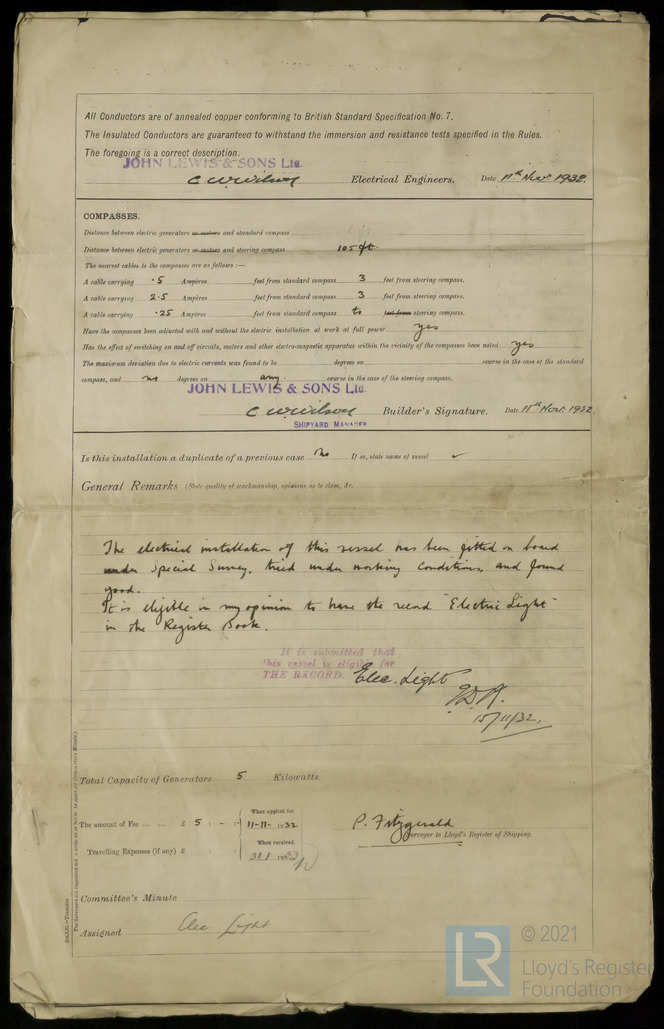 All Conductors are of annealed copper conforming to British Standard Specification No. 7.
The Insulated Conductors are guaranteed to withstand the immersion and resistance tests specified in the Rules.
The foregoing is a correct description.
JOHN LEWIS & SONS Ltd.
C W Wilson Electrical Engineers. Date 11th Nov. 1932.
COMPASSES.
Distance between electric generators or motors and standard compass
Distance between electric generators or motors and steering compass 105 ft.
The nearest cables to the compasses are as follows :—
A cable carrying .5 Ampères feet from standard compass 3 feet from steering compass.
A cable carrying 2.5 Ampères feet from standard compass 3 feet from steering compass.
A cable carrying .25 Ampères feet from standard compass to feet from steering compass.
Have the compasses been adjusted with and without the electric installation at work at full power yes
Has the effect of switching on and off circuits, motors and other electro-magnetic apparatus within the vicinity of the compasses been noted yes
The maximum deviation due to electric currents was found to be degrees on course in the case of the standard
compass, and no degrees on any course in the case of the steering compass.
JOHN LEWIS & SONS Ltd.
C W Wilson Builder's Signature. Date 11th Nov. 1932.
SHIPYARD MANAGER
Is this installation a duplicate of a previous case No If so, state name of vessel ✓
General Remarks (State quality of workmanship, opinions as to class, &c.
The electrical installation of this vessel has been fitted on board
under Special Survey, tried under working conditions, and found
good.
It is eligible in my opinion to have the record "Electric Light"
in the Register Book.
It is submitted that
this vessel is eligible for
THE RECORD. Elec. Light
15/11/32.
Total Capacity of Generators 5 Kilowatts.
The amount of Fee ... ... £ 5 : - : When applied for, 11-11- 1932
P. Fitzgerald
Surveyor to Lloyd's Register of Shipping.
Travelling Expenses (if any) £ : : When received, 31.1.1933
Committee's Minute
Assigned Elec Light
© 2021
LR
Lloyd's Register
Foundation